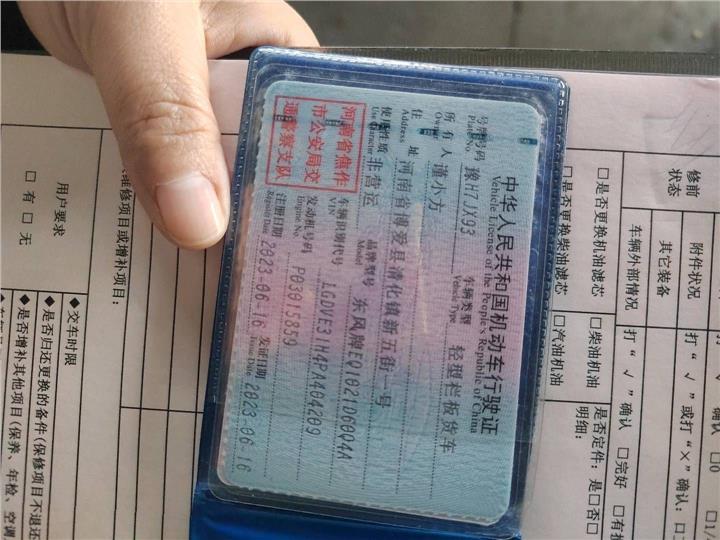 中华人民共和国机动车行驶证
Vehicle License of the People's Republic of China
号牌号码 豫H7JX93 车辆类型 轻型栏板货车
Plate No. Vehicle Type
所有人 谨小方
Owner
住址 河南省博爱县清化镇新五街一号
Address
使用性质 非营运 品牌型号 东风牌EQ1021D60Q4A
Use Character Model
河南省焦作
市公安局交
通警察支队
车辆识别代号 LGDVE31H4PA404209
VIN
发动机号码 P03015889
Engine No.
注册日期 2023-06-16 发证日期 2023-06-16
Register Date Issue Date
修前
状态
附件状况 打“√”或打“×”确认:
其它装备
车辆外部情况 打“√”确认 □完好
□是否更换机油滤芯 □柴油机油 是否定件:是□否□
□是否更换柴油滤芯 □汽油机油 明细:
维修项目或增补项目:
◆交车时限
用户要求 ◆是否归还更换的备件(保修项目不退还
□有 □无 ◆是否增补其他项目(保养、年检、空调